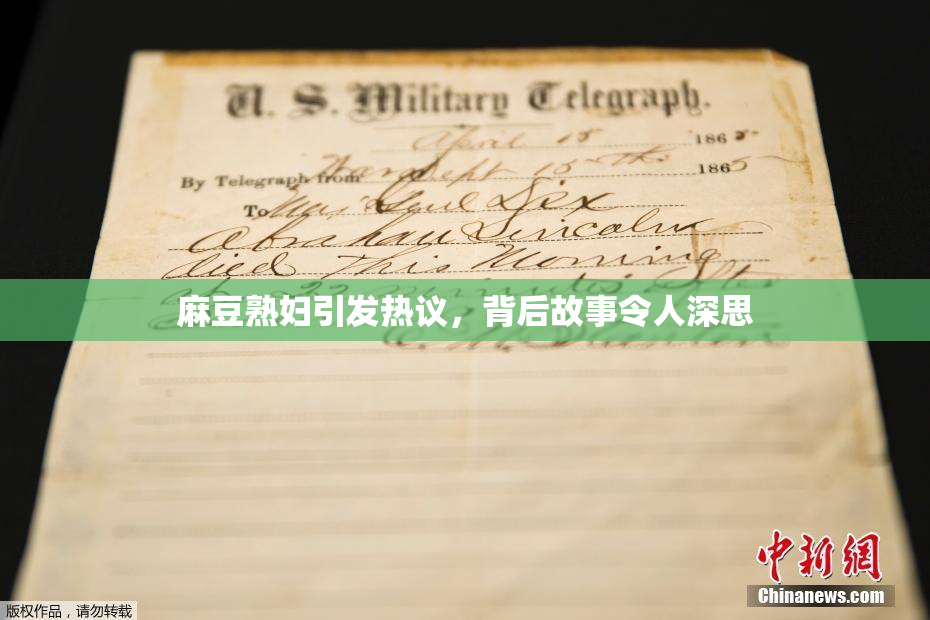 U. S. Military Telegraph.
April 15 1865
By Telegraph from War Dept 15th 1865
To Maj Genl Dix
Abraham Lincoln
died This Morning
at 22 minutes after
麻豆熟妇引发热议，背后故事令人深思
E. M. Stanton
中新网
Chinanews.com
版权作品，请勿转载